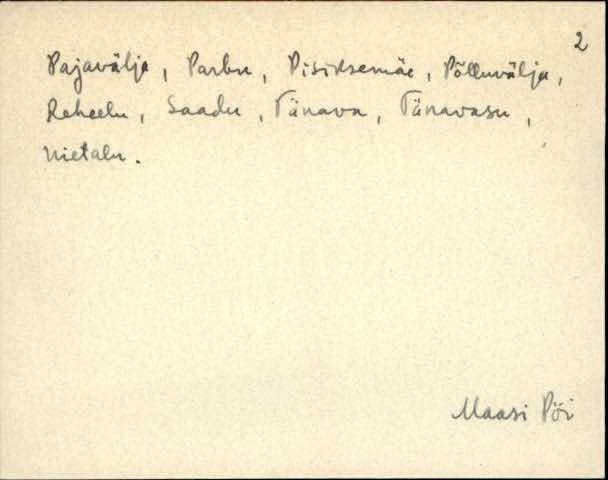 2
Pajavälja, Parbu, Pisiksemäe, Põlluvälja,
Reheelu, Saadu, Tänava, Tänavasu,
Uietalu.
Maasi Pöi